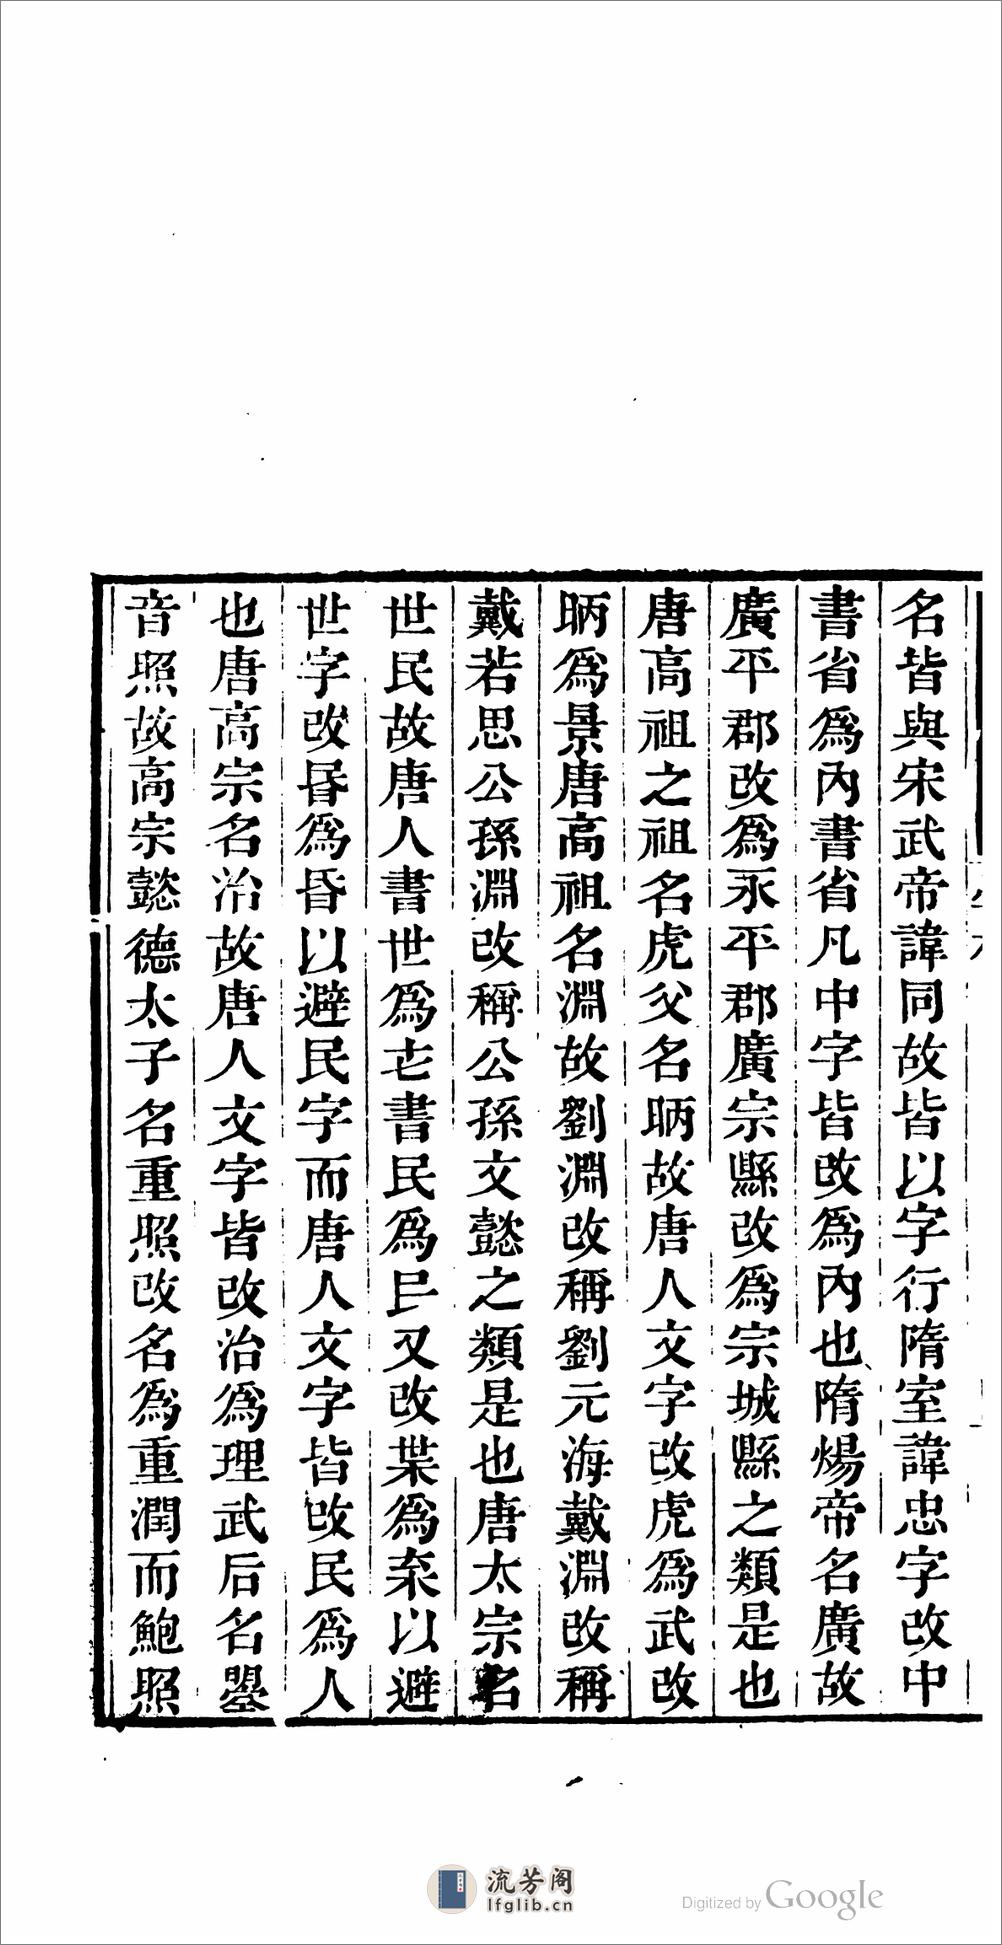 名皆與宋武帝諱同故皆以字行隋室諱忠字改中
書省爲內書省凡中字皆改爲內也隋煬帝名廣故
廣平郡改爲永平郡廣宗縣改爲宗城縣之類是也
唐高祖之祖名虎父名昞故唐人文字改虎爲武改
昞爲景唐高祖名淵故劉淵改稱劉元海戴淵改稱
戴若思公孫淵改稱公孫文懿之類是也唐太宗名
世民故唐人書世爲卋書民爲𡰱又改葉爲枽以避
世字改昬爲昏以避民字而唐人文字皆改民爲人
也唐高宗名治故唐人文字皆改治爲理武后名曌
音照故高宗懿德太子名重照改名爲重潤而鮑照
流芳阁
lfglib.cn
Digitized by Google